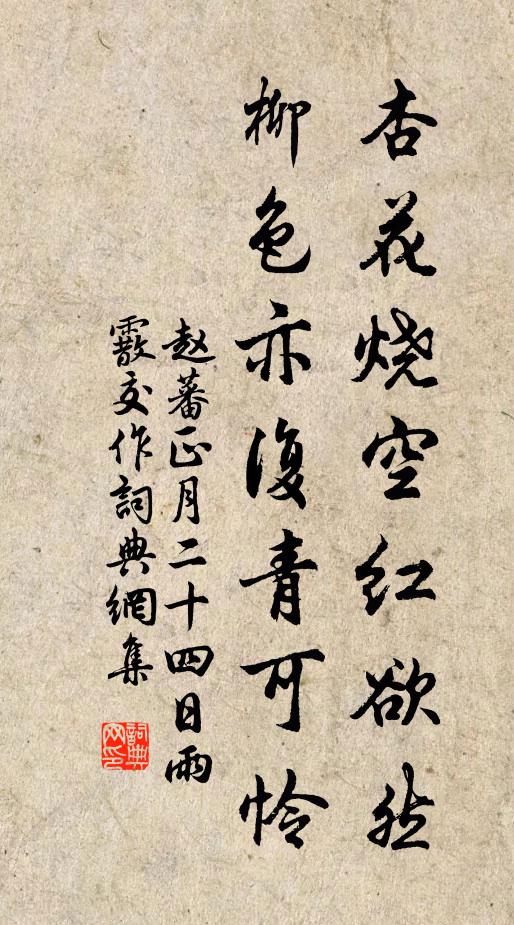 杏花烧空红欲然
柳色亦復青可怜
赵蕃正月二十四日雨
霰交作詞典網集
詞典
网印